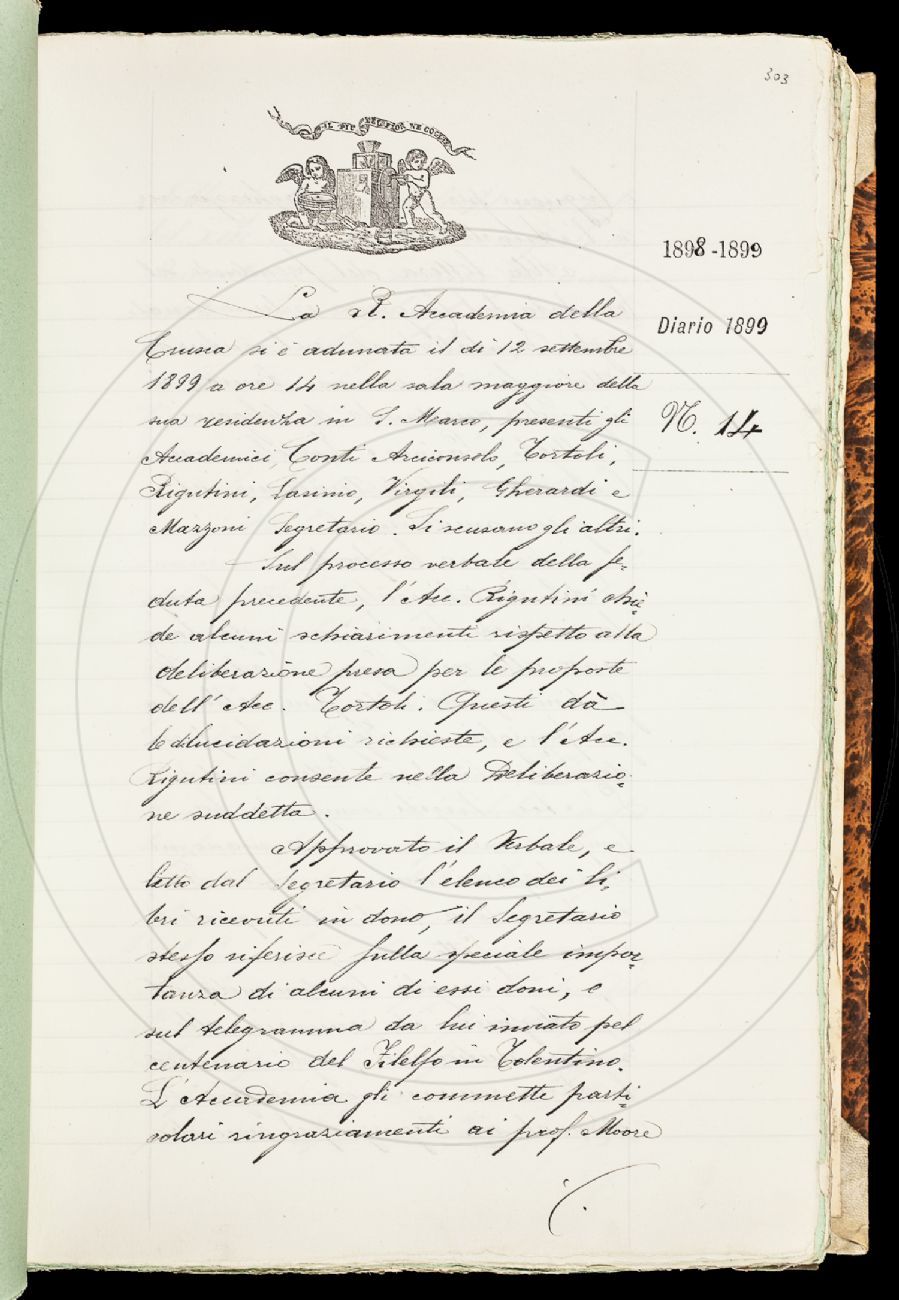 303
IL PIÙ BEL FIOR NE COGLIE
1898-1899
Diario 1899
N. 14
La R. Accademia della
Crusca si è adunata il dì 12 settembre
1899 a ore 14 nella sala maggiore della
sua residenza in S. Marco, presenti gli
Accademici Conti Arciconsolo, Tortoli,
Rigutini, Lasinio, Virgili, Gherardi e
Mazzoni Segretario. Si scusano gli altri.
Sul processo verbale della se-
duta precedente, l'Acc. Rigutini chie-
de alcuni schiarimenti rispetto alla
deliberazione presa per le proposte
dell'Acc. Tortoli. Questi dà
le dilucidazioni richieste, e l'Acc.
Rigutini consente nella Deliberazio-
ne suddetta.
Approvato il Verbale, e
letto dal Segretario l'elenco dei li-
bri ricevuti in dono, il Segretario
stesso riferisce sulla speciale impor-
tanza di alcuni di essi doni, e
sul telegramma da lui inviato pel
centenario del Filelfo in Tolentino.
L'Accademia gli commette parti-
colari ringraziamenti ai prof. Moore